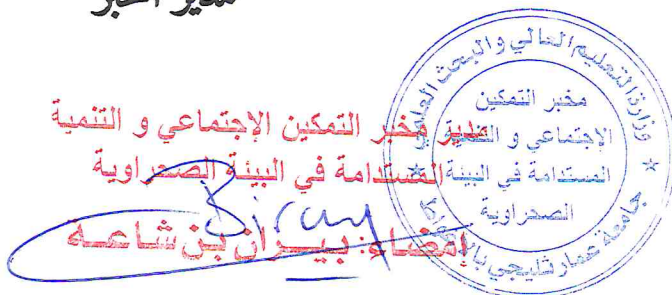 مدير المخبر
مدير مخبر التمكين الإجتماعي و التنمية
المستدامة في البيئة الصحراوية
إمضاء: بيران بن شاعة
وزارة التعليم العالي والبحث العلمي
جامعة عمار ثليجي
مخبر التمكين
الإجتماعي و التنمية
المستدامة في البيئة
الصحراوية